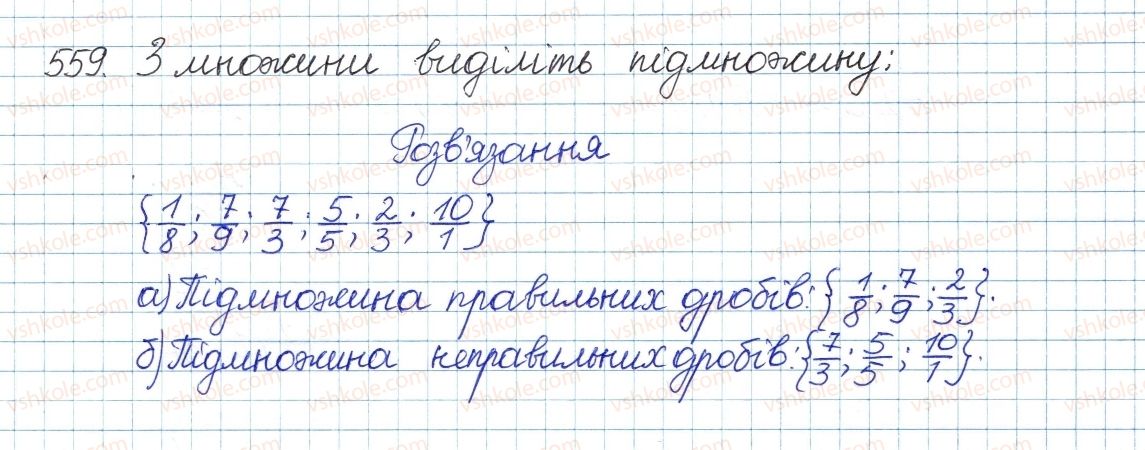 559. З множини виділіть підмножину:
Розв'язання
{1/8; 7/9; 7/3; 5/5; 2/3; 10/1}
а) Підмножина правильних дробів: {1/8; 7/9; 2/3}.
б) Підмножина неправильних дробів: {7/3; 5/5; 10/1}.